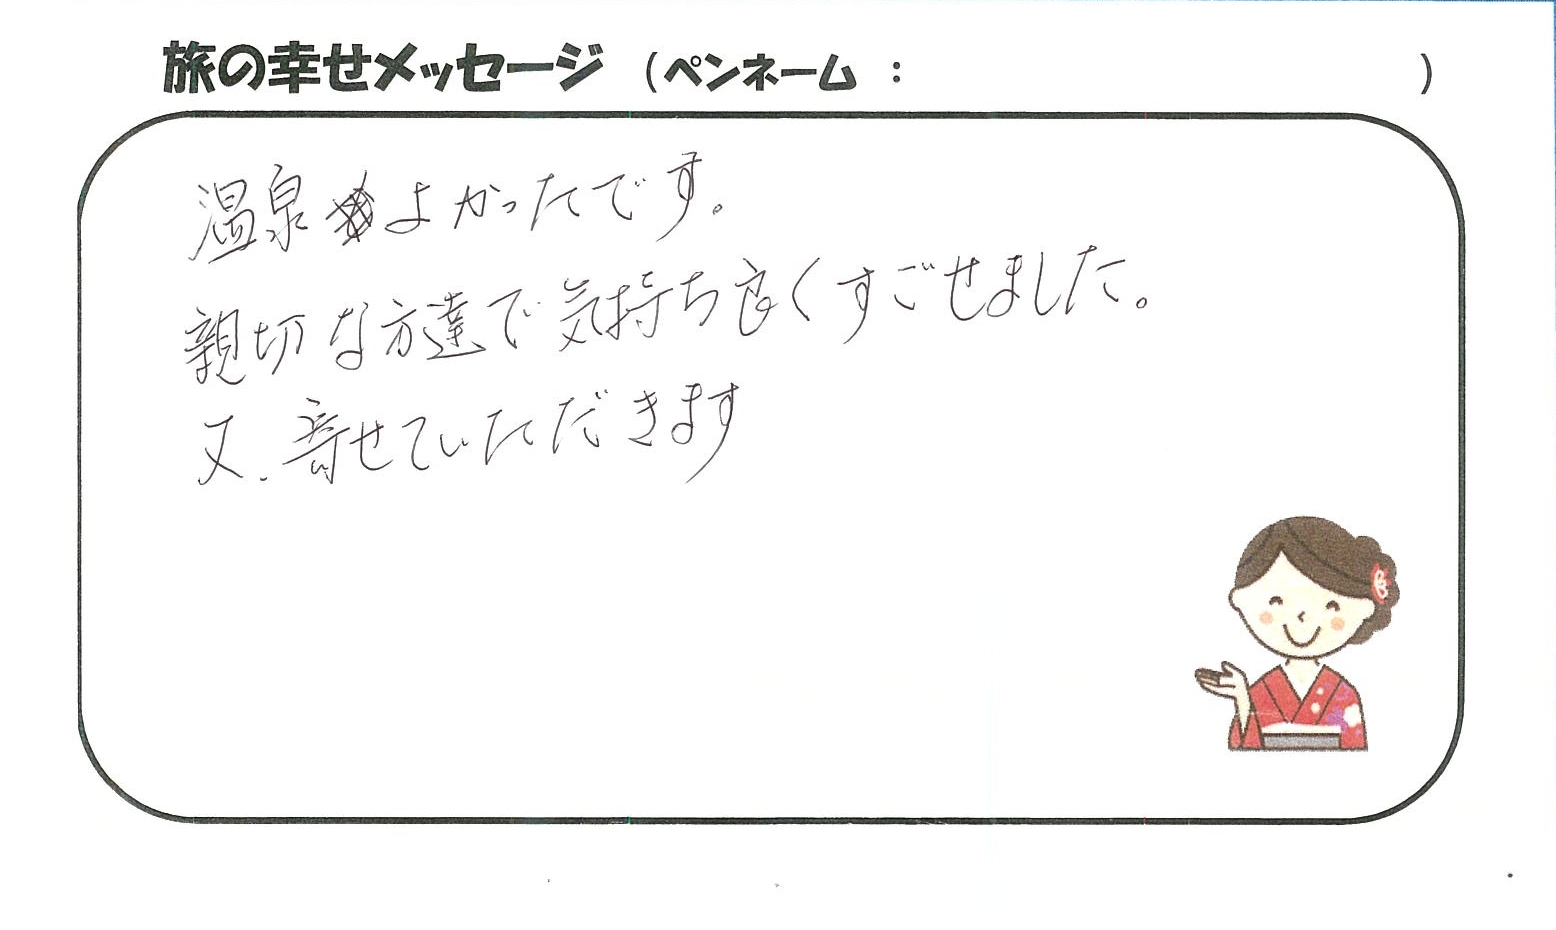 旅の幸せメッセージ （ペンネーム ： ）
温泉よかったです。
親切な方達で気持ち良くすごせました。
又、寄せていただきます